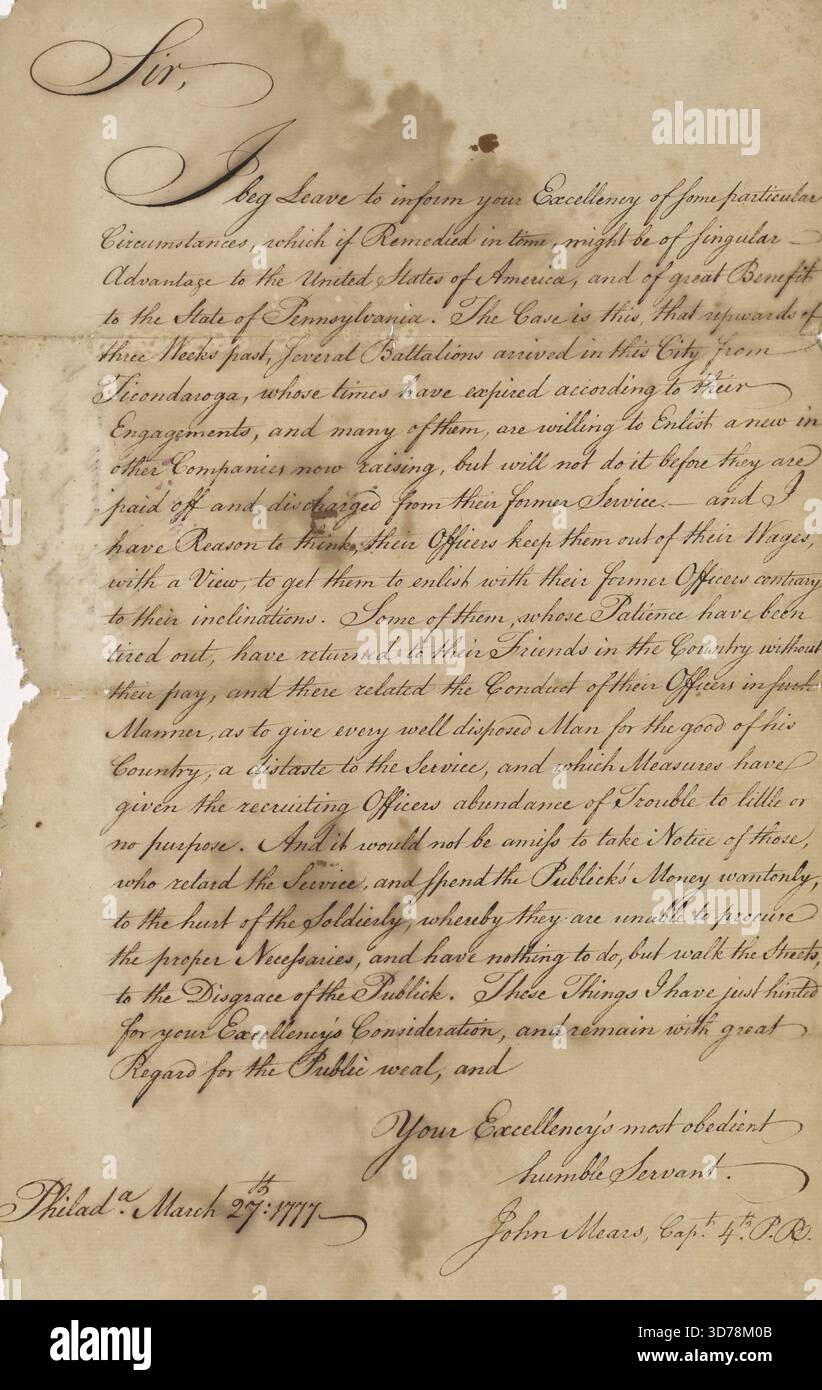 Sir,
I beg Leave to inform your Excellency of some particular
Circumstances, which if Remedied in time, might be of singular
Advantage to the United States of America, and of great Benefit
to the State of Pennsylvania. The Case is this, that upwards of
three Weeks past, several Battalions arrived in this City from
Ticondaroga, whose times have expired according to their
Engagements, and many of them, are willing to Enlist a new in
other Companies now raising, but will not do it before they are
paid off and discharged from their former Service. — and I
have Reason to think, their Officers keep them out of their Wages,
with a View, to get them to enlist with their former Officers contrary
to their inclinations. Some of them, whose Patience have been
tired out, have returned to their Friends in the Country without
their pay, and there related the Conduct of their Officers in such
Manner, as to give every well disposed Man for the good of his
Country, a distaste to the Service, and which Measures have
given the recruiting Officers abundance of Trouble to little or
no purpose. And it would not be amiss to take Notice of those,
who retard the Service, and spend the Publick's Money wantonly,
to the hurt of the Soldierly, whereby they are unable to procure
the proper Necessaries, and have nothing to do, but walk the Streets,
to the Disgrace of the Publick. These Things I have just hinted
for your Excellency's Consideration, and remain with great
Regard for the Public weal, and
Your Excellency's most obedient
humble Servant.
Philad.a March 27th: 1777
John Mears, Cap.t 4.th P.R.
alamy
Image ID: 3D78M0B
www.alamy.com